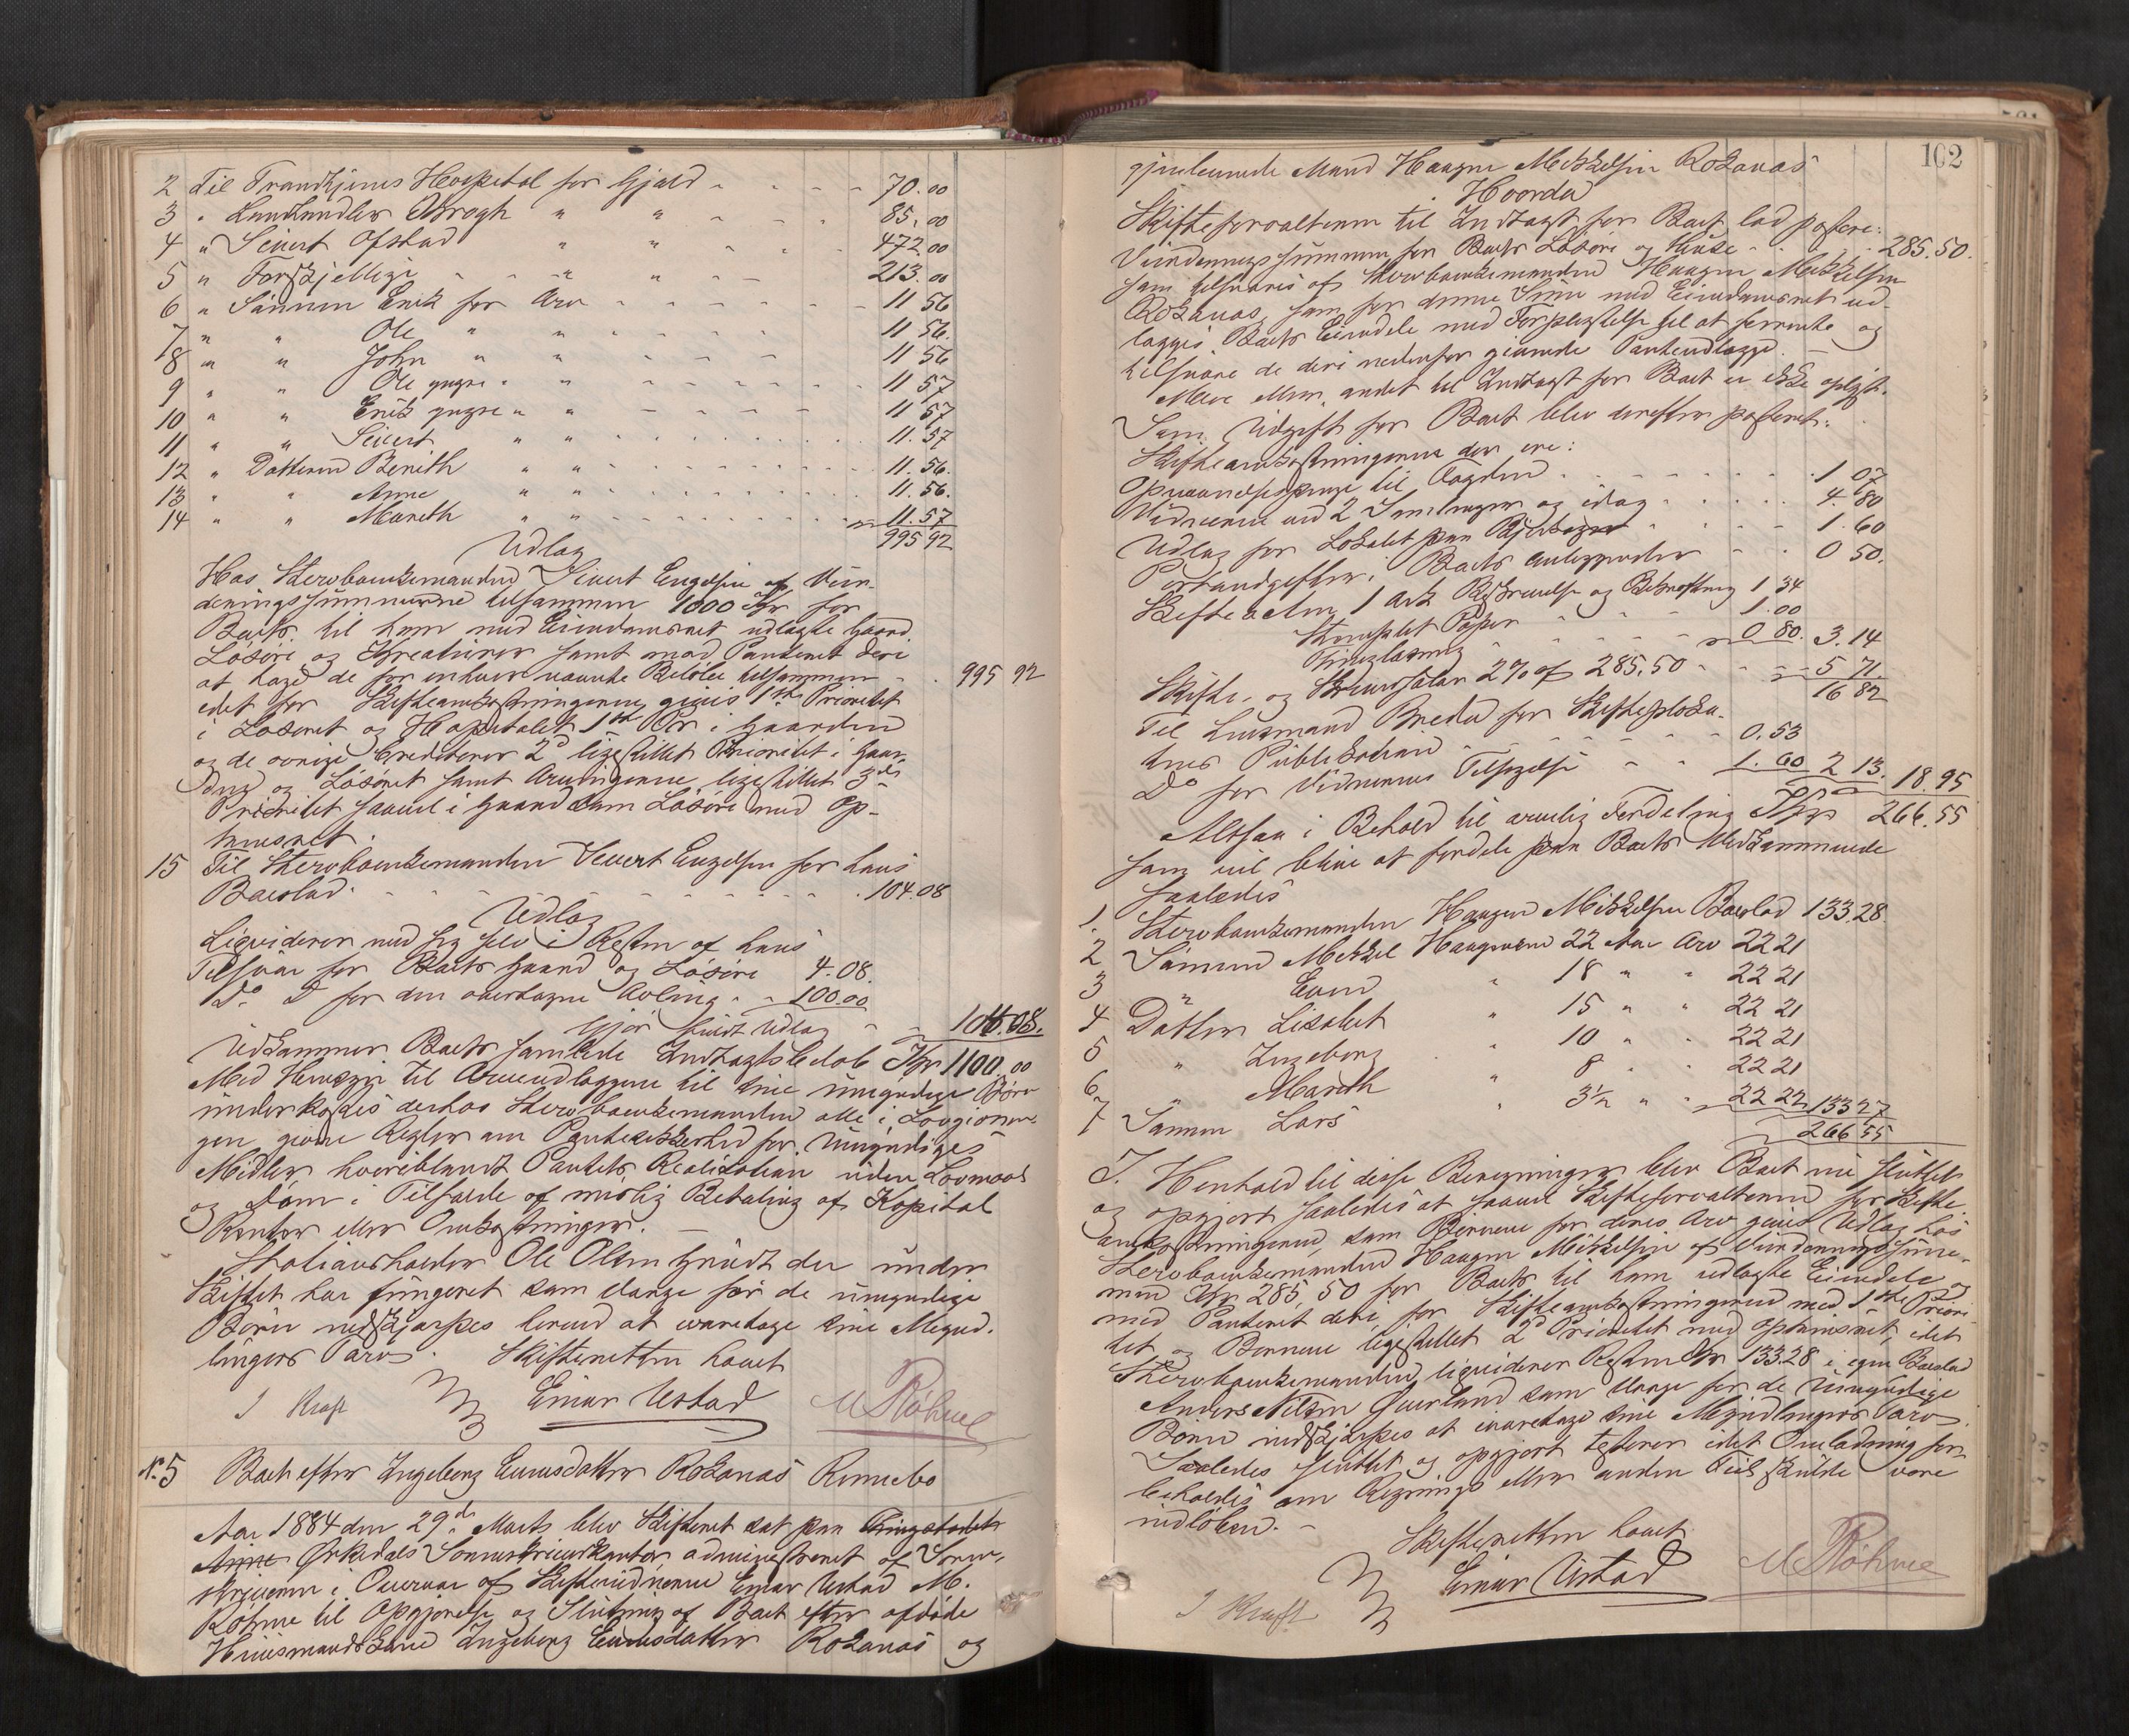 2 Til Trondhjems Hospital for Gjæld - - - - 70.00
3 " Landhandler Brogh " " - - - 85.00
4 " Sivert Ofstad " " - - 472.00
5 " Forskjellige - - " " - - 213.00
6 " Sønnen Erik for Arv - - - - - - 11 56
7 " " Ole " " - - - - - 11 56.
8 " " John " " - - - 11 56
9 " " Ole yngre " " - - - - - - 11 57
10 " " Erik yngre " " - - - - 11 57
11 " " Sivert " " - - - - - - - 11.57
12 " Datteren Berith " " - - - - - - - 11.56.
13 " " Anne " " - - - - - - - 11.56.
14 " " Mareth " " - - - - - - - 11.57
995 92
Udlæg
Hos Stervboenkemanden Sivert Engelsen af Vur-
deringssummerne tilsammen 1000 Kr for
Boets til ham med Eiendomsret udlagte Gaard,
Løsøre og Kreaturer samt mod Panteret deri
at tage de for enhver nævnte Beløbe tilsammen - . 995 92
idet for Skifteomkostningerne gives 1ste Prioritet
i Løsøret og Hospitalet 1ste Pr i Gaarden
og de øvrige Creditorer 2d ligestillet Prioritet i Gaar-
den og Løsøret samt Arvingerne ligestillet 3die
Prioritet saavel i Gaard som Løsøre med Op-
trinsret.
15 Til Stervboenkemanden Sivert Engelsen for hans
Boeslod - - - - - - - - - - 104.08
Udlæg
Liqviderer med sig selv i Resten af hans
Tilsvar for Boets Gaard og Løsøre 4.08.
Do D for den overtagne Avling - - 100.00
Gjør fuldt Udlæg - - 104.08.
Udkommer Boets samlede Indtægtsbeløb Kr 1100.00
Med Hensyn til Arveudlæggene til sine umyndige Børn
underkastes derhos Stervboenkemanden alle i Lovgivnin-
gen givne Regler om Pantesikkerhed for Umyndiges
Midler hvoriblandt Pantets Realisation uden Lovmaal
og Dom i Tilfælde af mislig Betaling af Kapital
Renter eller Omkostninger. -
Stationsholder Ole Olsen Grudt der under
Skiftet har fungeret som Værge for de umyndige
Børn indskjærpes herved at varetage sine Mynd-
lingers Tarv. Skifteretten hævet
J Kraft Einar Ustad M Røhme
No 5 Boet efter Ingeborg Evensdatter Rokanæs Rennebo
Aar 1884 den 29de Marts blev Skifteret sat paa Thingstedet
Aune Ørkedals Sorenskriverkontor, administreret af Soren-
skriveren i Overvær af Skiftevidnerne Einar Ustad M.
Røhme til Opgjørelse og Slutning af Boet efter afdøde
Huusmandskone Ingeborg Evensdatter Rokanæs og
102
gjenlevende Mand Haagen Mikkelsen Rokanæs
Hvorda
Skifteforvalteren til Indtægt for Boet lod postere:
Vurderingssummen for Boets Løsøre og Huse - . . . 285.50.
som tilsvares af Stervboenkemanden Haagen Mikkelsen
Rokanæs, som for denne Sum med Eiendomsret ud-
lægges Boets Eiendele med Forpligtelse til at forrente og
tilsvare de deri nedenfor givende Panteudlægge. -
Mere eller andet til Indtægt for Boet er ikke oplyst.
Som Udgift for Boet blev derefter posteret:
Skifteomkostningerne der ere:
Opnævnelsespenge til Fogden - - - - - - - 1 07
Vidnerne ved 2 Samlinger og idag - - - - 4.80
Udlæg for Lokalet paa Bjerkager " - - - 1.60
Forhandgifter i Boets Anliggender - - - 0 50.
Skifteakten 1 Ark Beskrivelse og Bekræftning 1 34
Stemplet Papir - - - - 1.00
Thinglæsning - - - - - 0 80. 3.14
Skifte- og Skriversalær 2% af 285.50 - - - 5 71.
16 82
Til Lensmand Bredu for Skifteplaka-
ters Publikation - - - - - - 0.53
Do for Vidnernes Tilsigelse - - 1.60 2 13. 18.95
Altsaa i Behold til arvelig Fordeling Kr 266.55
som vil blive at fordele paa Boets Vedkommende
saaledes
1. Stervboenkemanden Haagen Mikkelsen Boeslod 133.28
2 Sønnen Mikkel Haagensen 22 Aar Arv 22 21
3 " Even " 18 " " 22 21
4 Datter Lisabet " 15 " " 22 21
5 " Ingeborg " 10 " " 22 21
6 " Mareth " 8 " " 22 21
7 Sønnen Lars " 3½ " " 22 22 133 27
266 55
I Henhold til disse Beregninger blev Boet nu sluttet
og opgjort saaledes at saavel Skifteforvalteren for Skifte-
omkostningerne, som Børnene for deres Arv gives Udlæg hos
Stervboenkemanden Haagen Mikkelsen af Vurderingssum-
men Kr 285,50 for Boets til ham udlagte Eiendele og
med Panteret deri, for Skifteomkostningerne med 1ste Priori-
tet og Børnene ligestillet 2d Prioritet med Optrinsret, idet
Stervboenkemanden liqviderer Resten Kr 133.28 i egen Boeslod
Anders Nilsen Qverland som Værge for de Umyndige
Børn indskjærpes at varetage sine Myndlingers Tarv
Saaledes sluttet og opgjort testerer idet Omladning for-
beholdes om Regnings eller anden Feil skulde være
indløben. -
Skifteretten hævet
J Kraft Einar Ustad M Røhme